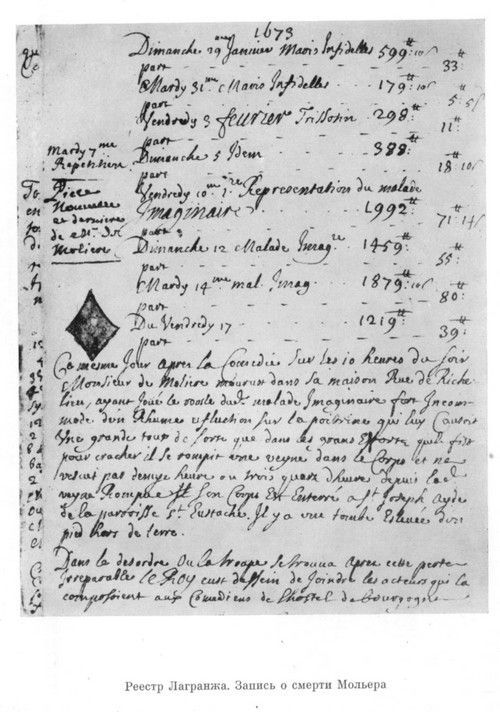 1673
Dimanche 29me Janvier Maris Infidelles 599tt 10s
part 33tt
Mardy 31me Maris Infidelles 179tt 10s
part 5tt 5s
Vendredy 3 feurier Trissotin 298tt
part 11tt
Mardy 7me
Repetition
Dimanche 5 Idem 388tt
part 18tt 10s
Piece
Nouuelle
et derniere
de Mr de
Moliere
Vendredy 10me 1re Representation du malade
Imaginaire 1992tt
part 71tt 14s
Dimanche 12 Malade Imagre 1459tt
part 55tt
Mardy 14me mal. Imag. 1879tt 10s
part 80tt
Du Vendredy 17 1219tt
part 39tt
Ce mesme Jour apres la Comedie Sur les 10 heures du Soir
Monsieur de Moliere mourust dans sa maison Rue de Riche
lieu, ayant Joué le roosle dud. malade Imaginaire fort Incom
modé d'un Rhume et fluction sur la poictrine qui luy Causoit
Une grande toux de Sorte que dans les grans Efforts qu'il fist
pour cracher il se rompit une veyne dans le Corps et ne
vescut pas demye heure ou trois quarts d'heure depuis lad.
veyne Rompue Son Corps Est Enterré a St Joseph Ayde
de la parroisse St Eustache. Il y a une tombe Esleuée d'un
pied hors de terre.
Dans le desordre Ou la troupe se trouua Apres cette perte
Irreparable Le Roy eust dessein de Joindre les acteurs qui la
composoient aux Comediens de l'hostel de bourgogne
Реестр Лагранжа. Запись о смерти Мольера